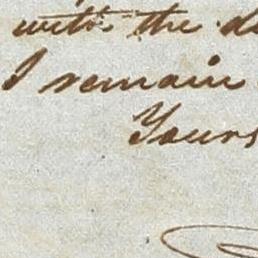 with the
I remain
Yours